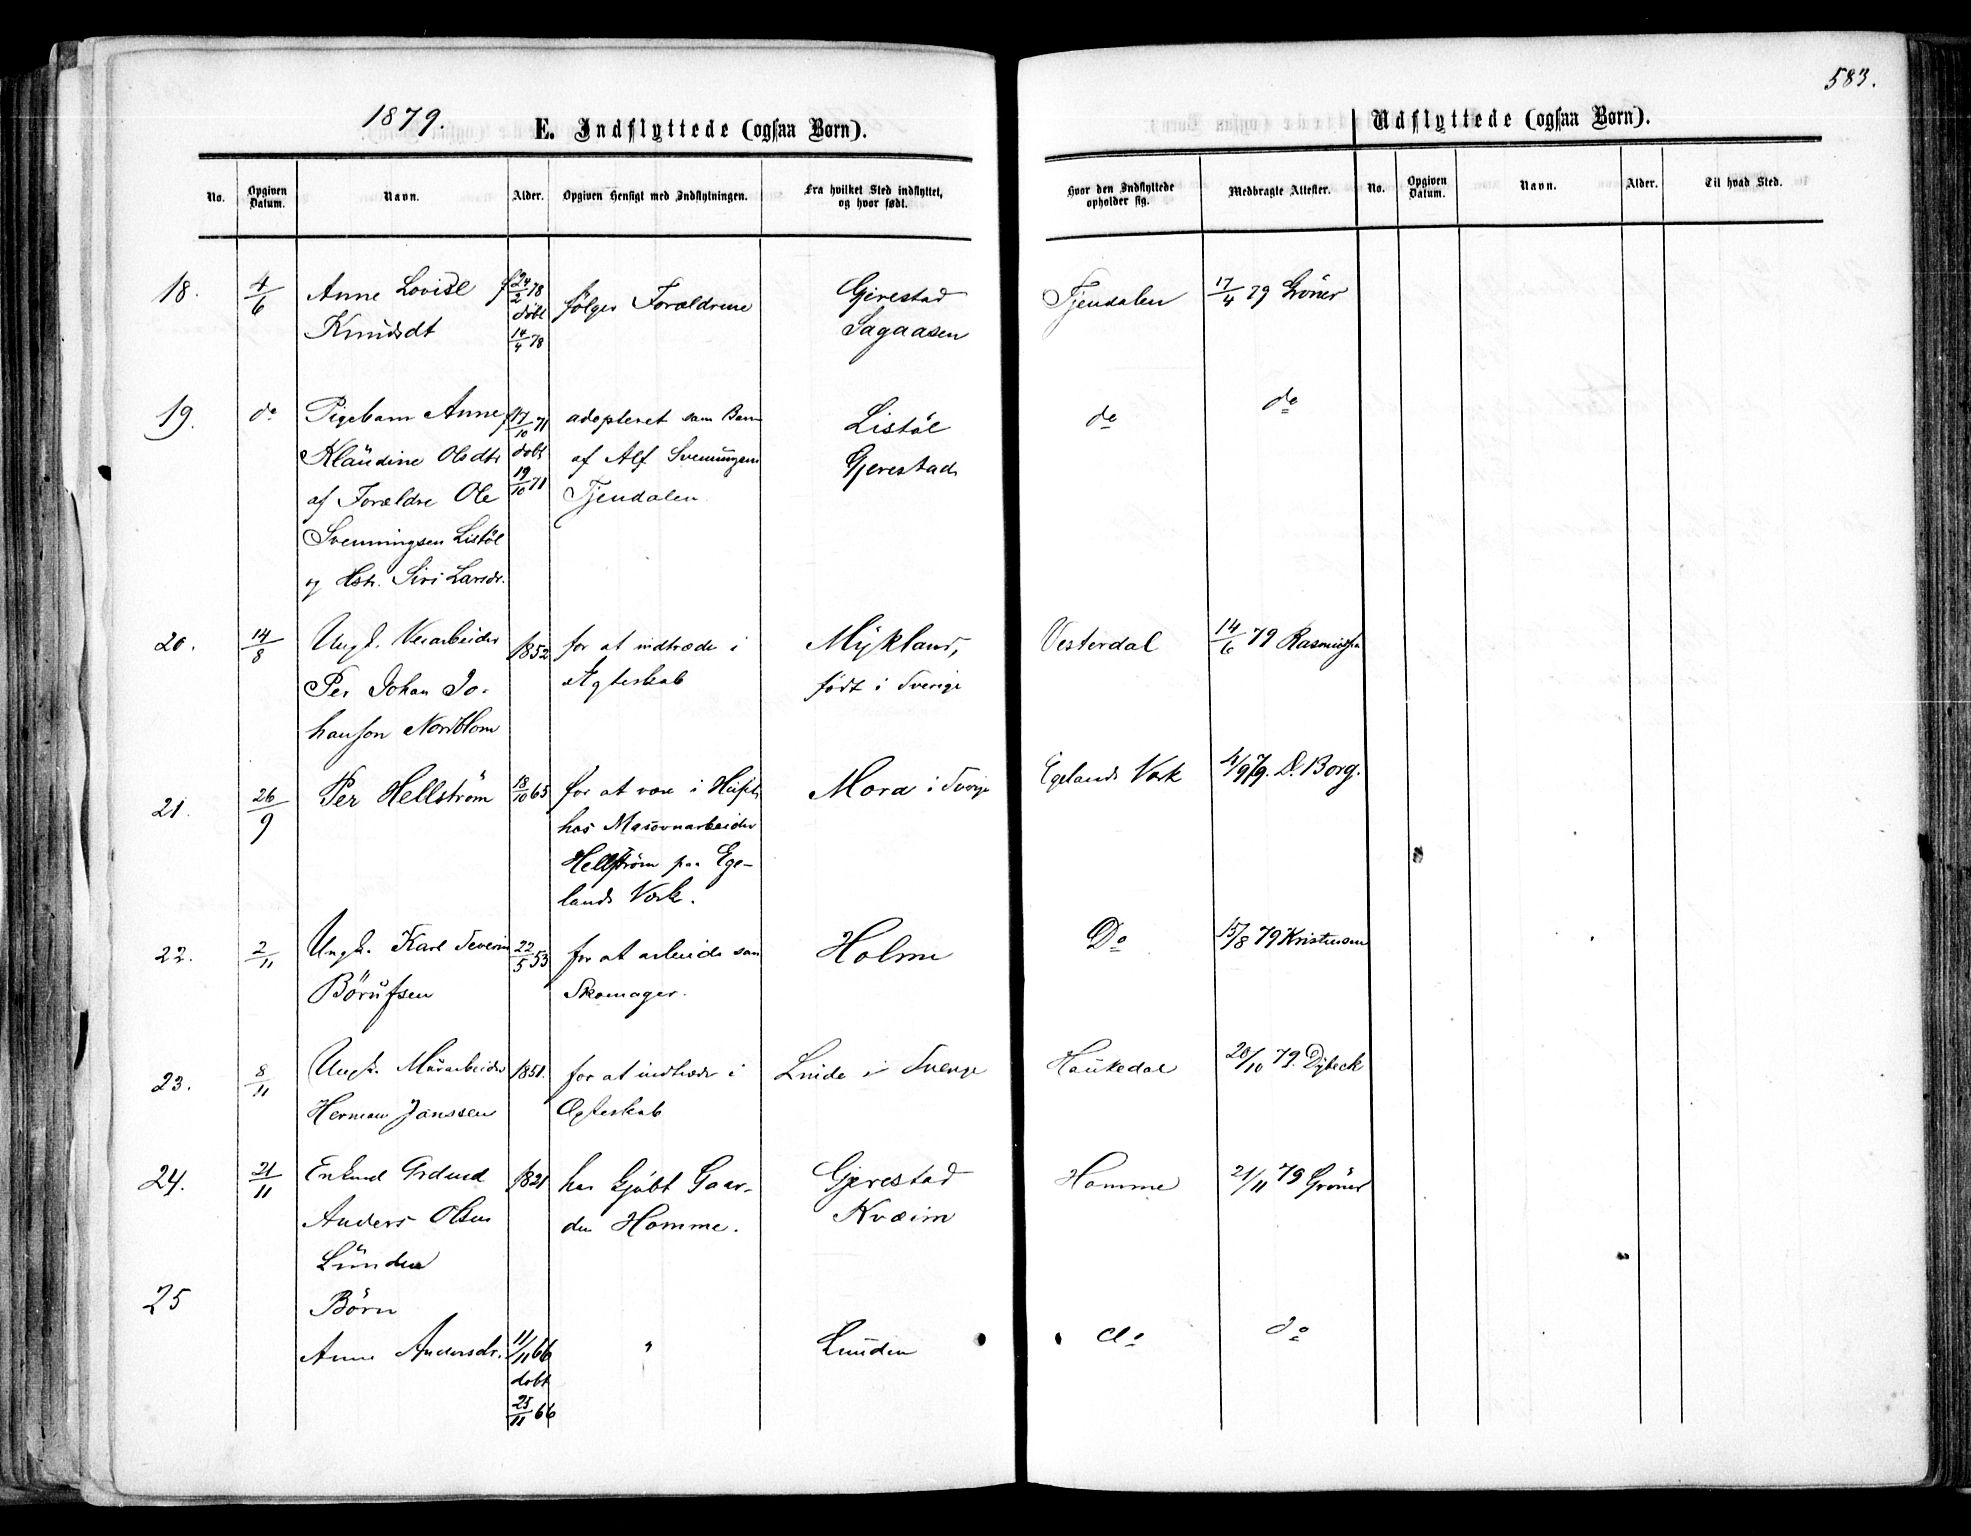 583.
1879.
E. Indflyttede (ogsaa Børn).
Udflyttede (ogsaa Børn).
No. Opgiven Datum. Navn. Alder. Opgiven Hensigt med Indflytningen. Fra hvilket Sted indflyttet, og hvor født. Hvor den Indflyttede opholder sig. Medbragte Attester. No. Opgiven Datum. Navn. Alder. Til hvad Sted.
18. 4/6 Anne Lovise f 24/2 78 følger Forældrene Gjerestad Tjendalen 17/4 79 Gröner
Knudsdt döbt 14/4 78 Sagaasen
19. do Pigebarn Anne f 17/10 71 adopteret som Barn Listöl do do
Klaudine Olsdtr döbt af Alf Svenningsen Gjerestad
af Forældre Ole 19/10 71 Tjendalen.
Svenningsen Listöl
og Hstr. Siri Larsdr.
20. 14/8 Ungk. Veiarbeider 1852 for at indtræde i Mykland, Vesterdal 14/6 79 Rasmussen
Per Johan Jo- Ægteskab født i Sverige
hanson Nordblom
21. 26/9 Per Hellström 18/10 65 for at være i Huset Mora i Sverige Egelands Værk 4/9 79. D. Borg.
hos Masovnarbeider
Hellström paa Ege-
lands Værk.
22. 2/11 Ungk. Karl Severin 22/5 53 for at arbeide som Holme Do 15/8 79 Kristensen
Börufsen Skomager.
23. 8/11 Ungk. Murarbeider 1851. for at indtræde i Linde i Sverige Haukedal 20/10 79. Dybeck
Herman Janssen Ægteskab
24. 21/11 Enkemd Grdmd 1821 har kjöbt Gaar- Gjerestad Homme 21/11 79 Gröner
Anders Olsen den Homme. Kvæim
Lunden
25 Börn
Anne Andersdr. 11/11 66 " Lunden do do
döbt
25/11 66